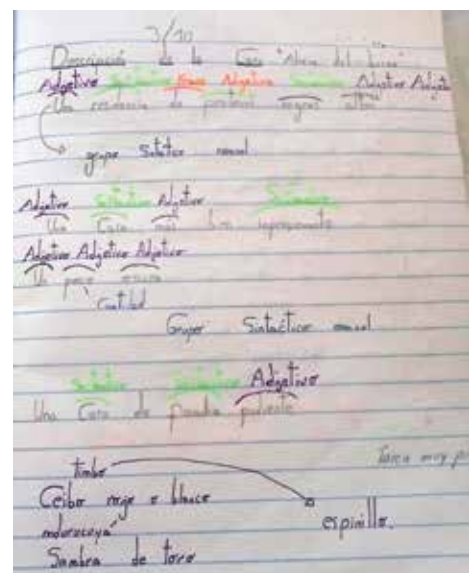 3/10
Descripción de la Casa "Abeja del
Adjetivo Sustantivo Adjetivo Sustantivo Adjetivo Adjetivo
Una residencia de portones negros altos
grupo Sintáctico nominal
Adjetivo Sustantivo Adjetivo Sustantivo
Una Casa más bien
Adjetivo Adjetivo Adjetivo
Un poco oscura
Cantidad
Grupo Sintáctico nominal
Sustantivo Sustantivo Adjetivo
Una Casa de piedra
Tarea muy
timbo
Ceibo rojo o blanco
espinillo.
mburucuyá
Sombra de toro